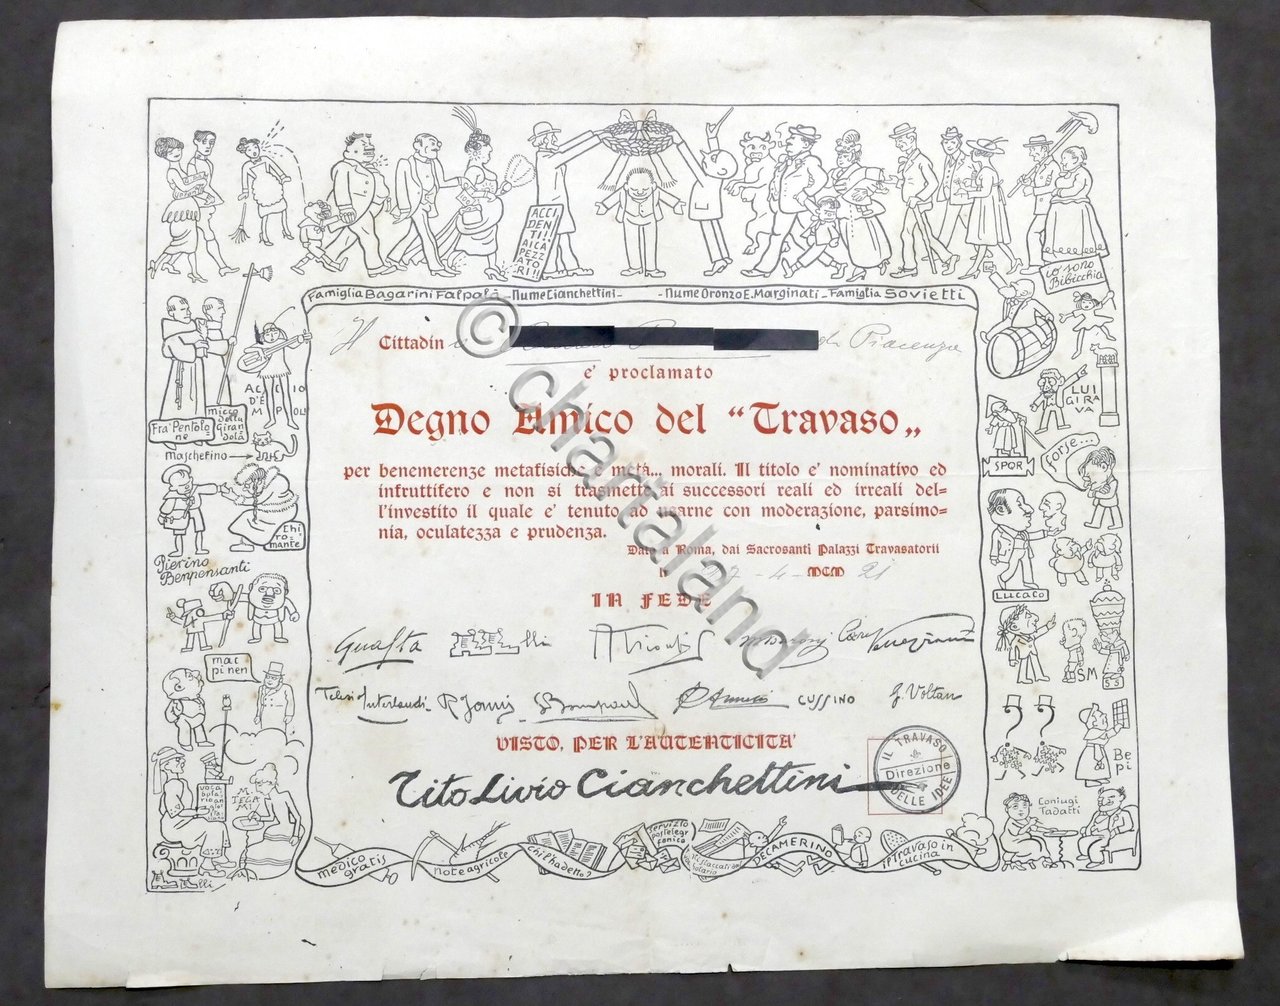 ACCI
DEN
TI!!
AI CA
PEZZ
ATO
RI!!
Famiglia Bagarini Falpalà - Nume Cianchettini - - Nume Oronzo E. Marginati - Famiglia Sovietti
io sono
Bibicchia
Il Cittadin di Piacenza
e' proclamato
Degno Amico del "Travaso"
per benemerenze metafisiche e metà... morali. Il titolo e' nominativo ed
infruttifero e non si trasmette ai successori reali ed irreali del=
l'investito il quale e' tenuto ad usarne con moderazione, parsimo=
nia, oculatezza e prudenza.
Dato a Roma, dai Sacrosanti Palazzi Travasatorii
27-4-MCM 21
IN FEDE
Guasta
Interlandi
CUSSINO
G. Voltan
VISTO, PER L'AUTENTICITA'
Tito Livio Cianchettini
IL TRAVASO
Direzione
DELLE IDEE
Fra' Pentolo
ne
micco
della
giran
dola
AC CIO
D'E
M POLI
Maschetino
Chi
ro=
mante
Pierino
Benpensanti
mac
pinen
M.
TEGA
MI
LUI
GI RA
VA
SPQR
forse...
LUCACO
SM
SS
Be
pi
Coniugi
Tadatti
medico
gratis
note agricole
chi l'ha detto?
servizio
postelegr
fonico
DECAMERINO
il Travaso in
cucina
© chartaland